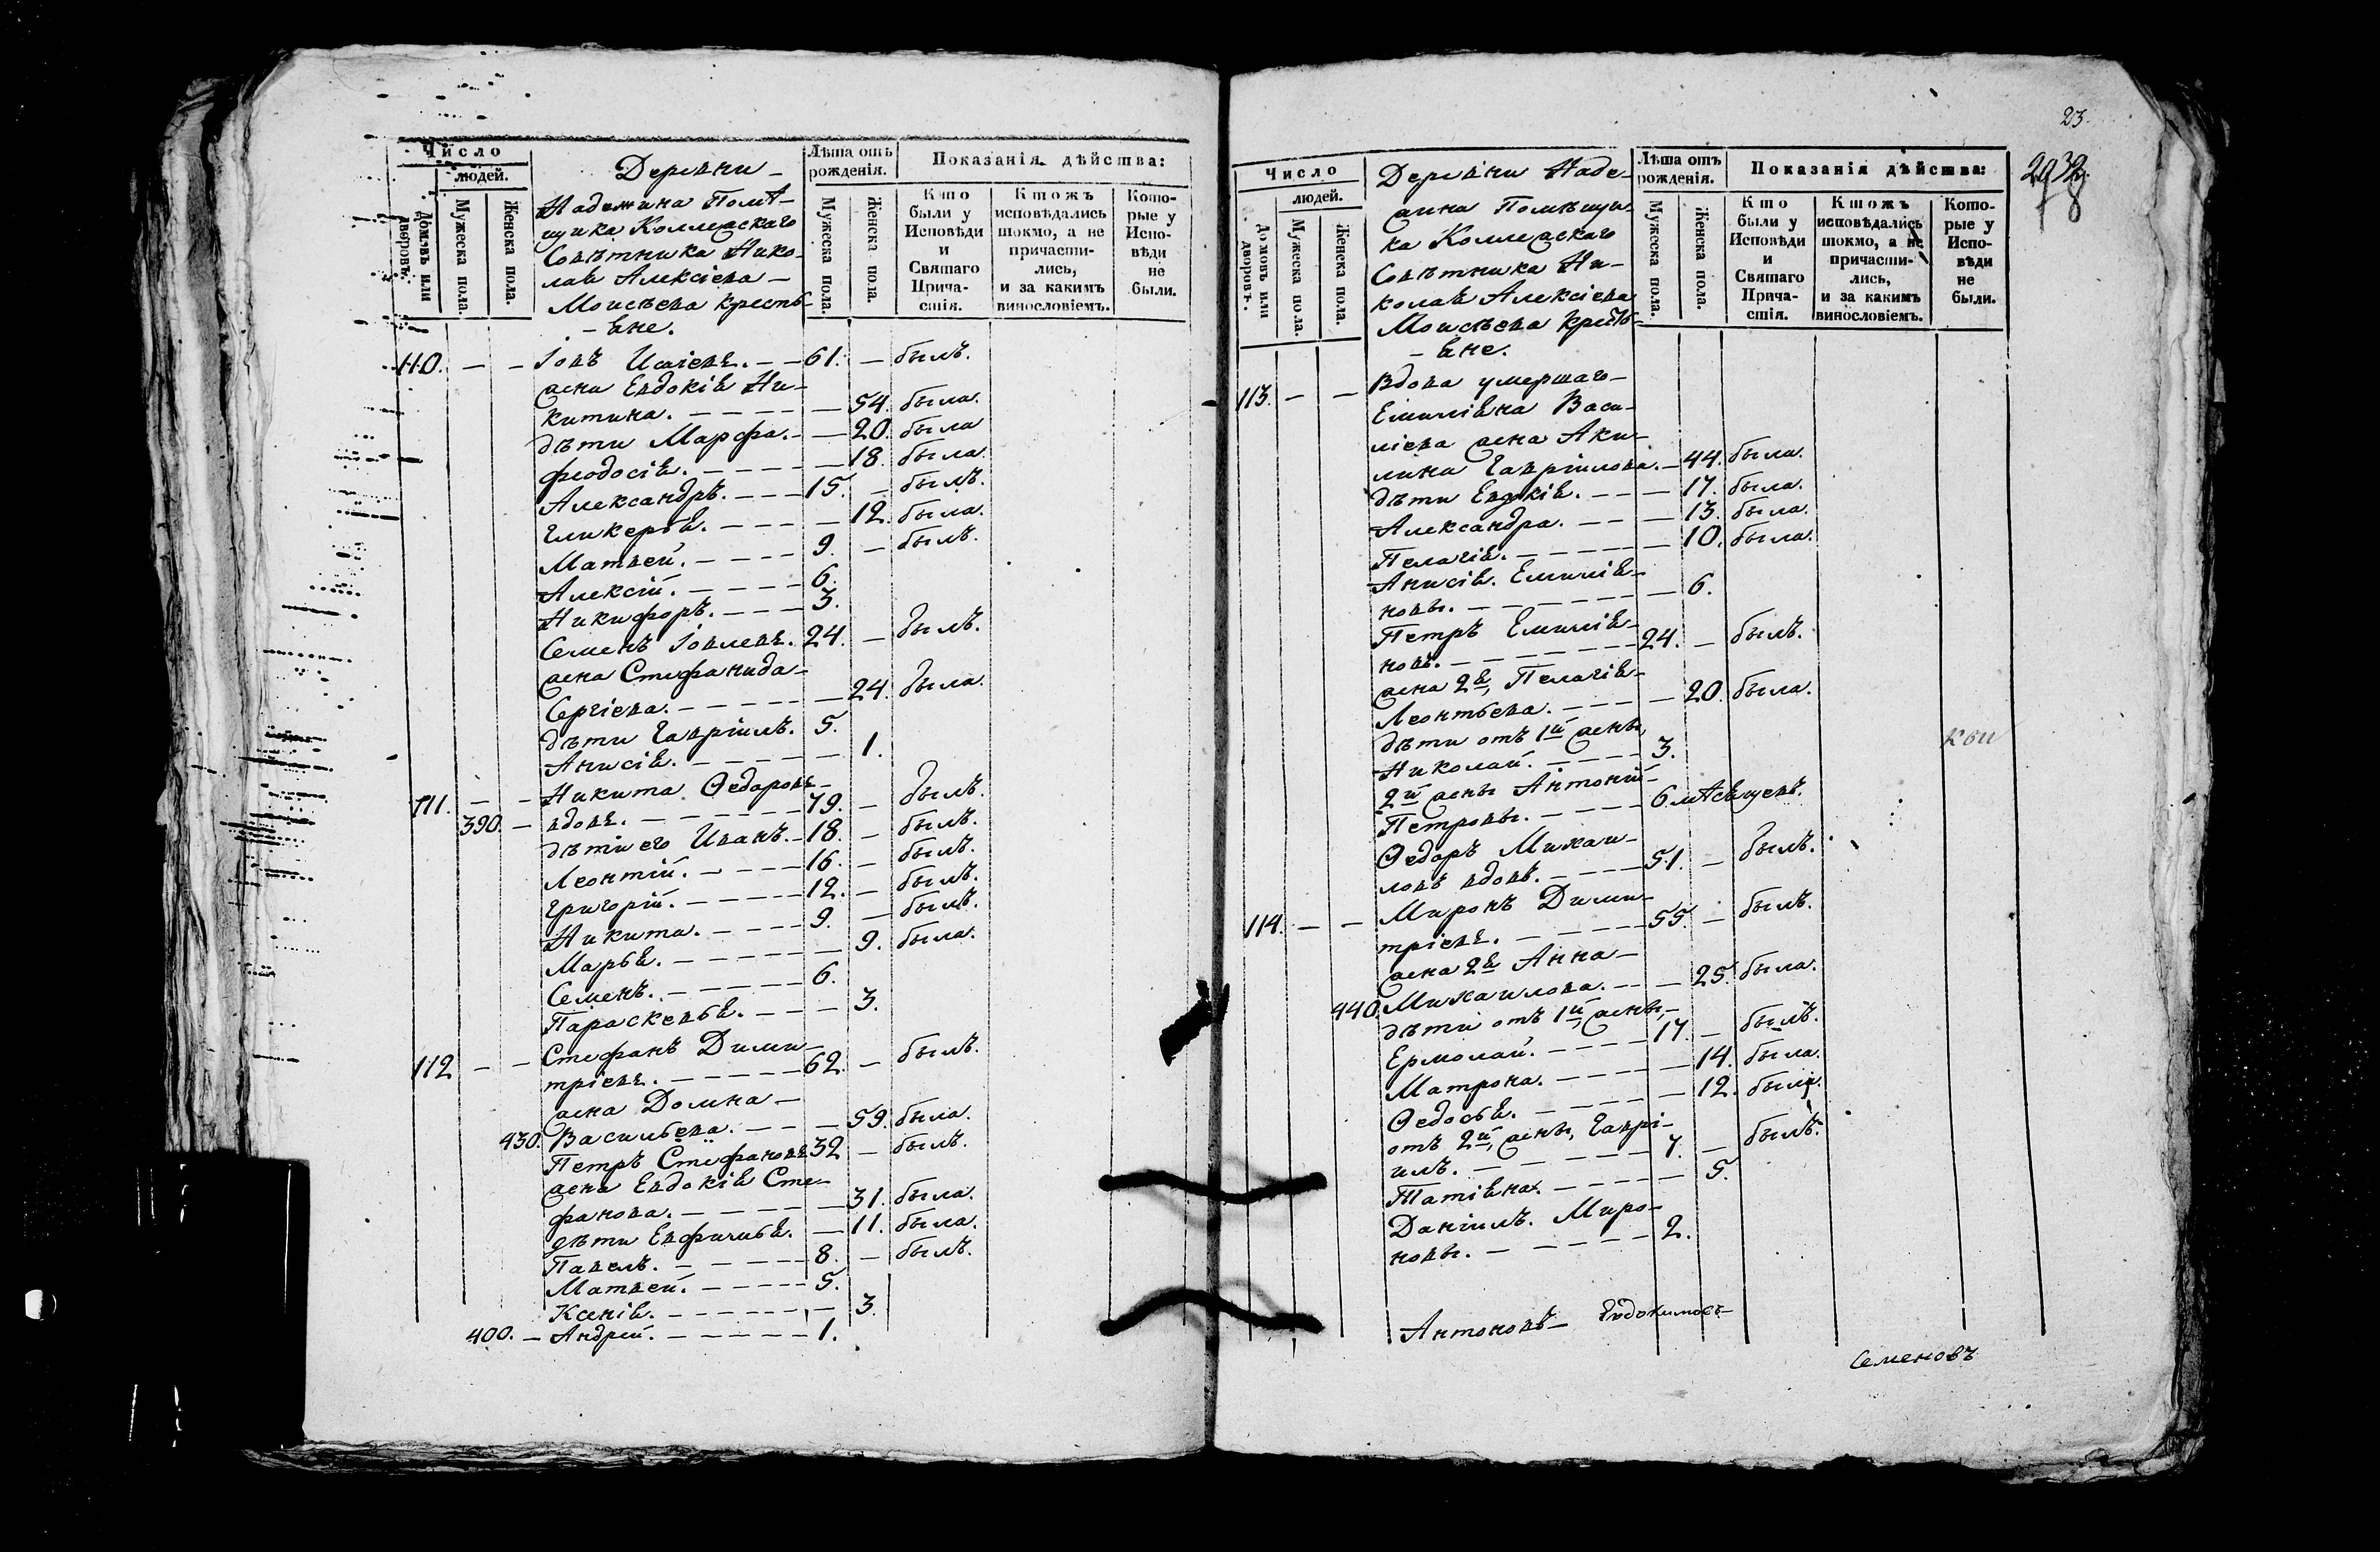 Число
людей.
Домовъ или дворовъ.
Мужеска пола.
Женска пола.
Деревни
Надежина Помѣ-
щика Коллежскаго
Совѣтника Нико-
лая Алексіева
Моисѣева кресть-
яне.
Лѣта отъ рожденія.
Мужеска пола.
Женска пола.
Показанія дѣйства:
Кто были у Исповѣди и Святаго Прича-стія.
Ктожъ исповѣдались токмо, а не причасти-лись, и за какимъ винословіемъ.
Кото-рые у Испо-вѣди не были.
110. — — Іовъ Исаіевъ. — — 61. — былъ.
жена Евдокія Ни-
китина. — — — — 54. была.
дѣти Марфа. — — 20. была
Феодосія. — — — — 18. была.
Александръ. — — — 15. — былъ.
Гликерья. — — — — 12. была.
Матвей. — — — — 9. — былъ.
Алексій. — — — — 6.
Никифоръ. — — — 3.
Семенъ Іовлевъ. 24. — былъ.
жена Стефанида
Сергіева. — — — — 24. была.
дѣти Гавріилъ. 5.
Анисія. — — — — 1.
111. — — Никита Ѳедаровъ
390. — вдовъ. — — — — 79. — былъ.
дѣти его Иванъ. — 18. — былъ.
Леонтій. — — — — 16. — былъ.
Григорій. — — — — 12. — былъ.
Никита. — — — — 9. — былъ.
Марья. — — — — — 9. была.
Семенъ. — — — — 6.
Параскевья. — — — 3.
112 — — Стефанъ Дими-
тріевъ. — — — — 62. — былъ.
жена Домна
430. Васильева. — — — 59. была.
Петръ Стефановъ 32 — былъ.
жена Евдокія Сте-
фанова. — — — — 31. была.
дѣти Евфимья. — 11. была.
Павелъ. — — — — 8. — былъ.
Матвей. — — — — 5.
Ксенія. — — — — — 3.
400. — Андрей. — — — — 1.
23.
2032.
Число
людей.
Домовъ или дворовъ.
Мужеска пола.
Женска пола.
Деревни Наде-
жина Помѣщи-
ка Коллежскаго
Совѣтника Ни-
колая Алексіева
Моисѣева кресть-
яне.
Лѣта отъ рожденія.
Мужеска пола.
Женска пола.
Показанія дѣйства:
Кто были у Исповѣди и Святаго Прича-стія.
Ктожъ исповѣдались токмо, а не причасти-лись, и за какимъ винословіемъ.
Кото-рые у Испо-вѣди не были.
113. — — Вдова умершаго
Емиліяна Васи-
ліева жена Аки-
лина Гавріилова. — 44. была.
дѣти Евдокія. — — — 17. была.
Александра. — — — 13. была.
Пелагія. — — — — — 10. была.
Анисія. Емилія-
новы. — — — — — 6.
Петръ Емилія-
новъ. — — — — — 24. — былъ.
жена 2я, Пелагія
Леонтьева. — — — — 20. была.
дѣти отъ 1й жены,
Николай. — — — — 3.
2й жены Антоній
Петровы. — — — 6 мѣсяцевъ.
Ѳедаръ Михаи-
ловъ вдовъ. — — — 51. — былъ.
114. — — Миронъ Дими-
тріевъ. — — — — 55. — былъ.
жена 2я Анна
440. Михаилова. — — — 25. была.
дѣти отъ 1й жены,
Ермолай. — — — — 17. — былъ.
Матрона. — — — — — 14. была.
Ѳедосья. — — — — — 12. была.
отъ 2й, жены, Гаврі-
илъ. — — — — — 7. — былъ.
Татіяна. — — — — — 5.
Даніилъ. Миро-
новы. — — — — — 2.
Антоновъ Евдокимовъ
Семеновъ